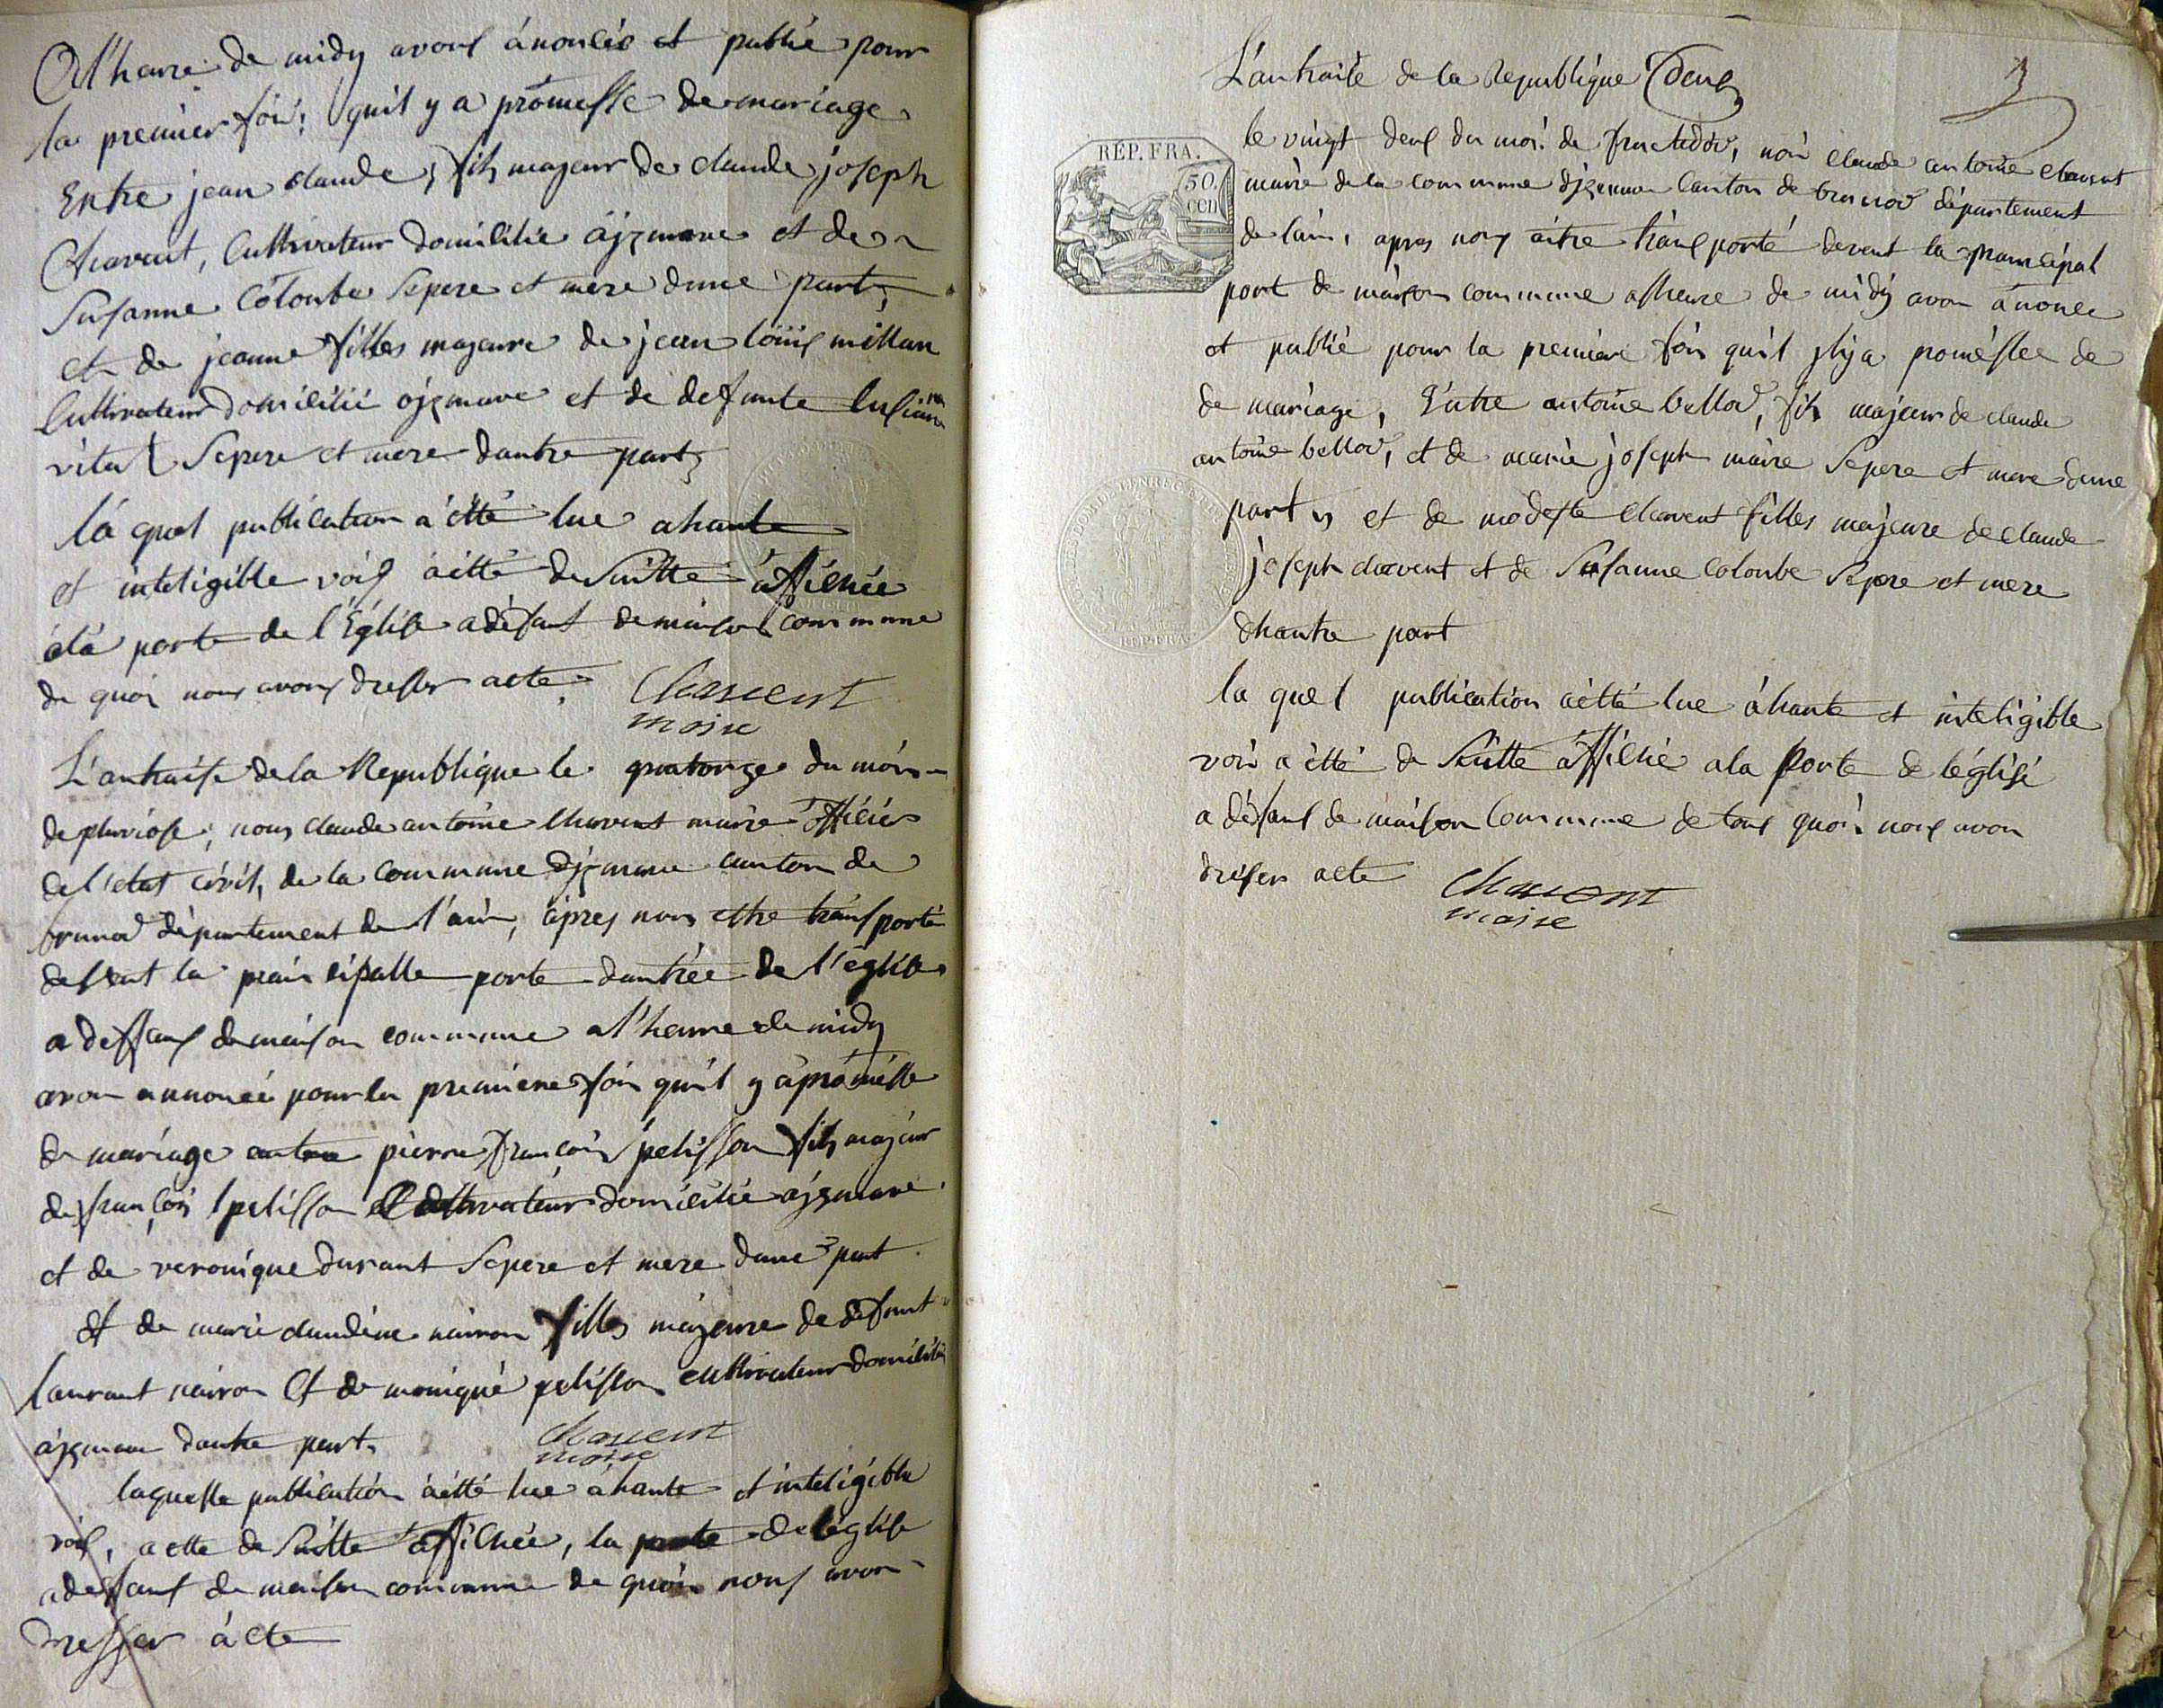 A lheure de midy avons ánoncée et publié pour
la premier fois; quil y a promesse de mariage
Entre jean claude, fils majeur de claude joseph
Chavent, Cultivateur domicilié àizenave et de
Susanne Colombe Sepere et mere dune part,
et de jeanne filles majeure de jean loüis millan
Cultivateur domicilié àizenave et de defunte
vital Sepere et mere dautre part,
lá quel publication a étté lue a haute
et inteligible voix àitté de Suitte àffichée
àlà porte de l'Église adefaut de maison commune
de quoi nous avons dresser acte. Chavent
maire
L'an treise de la Republique le quatorze du mois
de pluviose, nous claude antoine Chavent maire officier
de l'etat civil, de la commune dizenave canton de
brunod département de l'ain, àpres nous ettre transporté
devent la prain cipalle porte dantrée de l'église
a deffaux de maison commune a l'heure de midy
avon annoncé pour la premiere fois quil y a promésse
de mariage antre pierre françois pelisson fils majeur
de françois pelisson Cultivateur domicilié aizenave
et de veronique durant Sepere et mere dune part
et de marie claudine nairon filles majeure de défunt
laurant nairon Et de monique pelisson cultivateur domicilié
àizenave dautre part, Chavent
maire
laquelle publication àitté lue à haute et inteligible
voix, a ette de Suitte affichée, la porte de léglise
adeffaux de maison commune de quois nous avon
dresser àcte
3
L'an traise de la Republique Deux
RÉP. FRA.
50.
cen
le vingt deux du mois de fructidor, nous claude antoine chavent
maire de la commune dizenave Canton de brunod département
de lain, apres nous aitre transporté devent la prancipal
port de maison commune alheure de midy avon ánoncé
et publié pour la première fois quil y a promésse de
de mariage, Entre antoine bellod, fils majeur de claude
antoine bellod, et de marie joseph maire Sepere et mere dune
part, et de modeste chavent filles majeure de claude
joseph chavent et de Susanne Colombe Sepere et mere
dhautre part
la quel publication àitté lue à haute et inteligible
voix a étté de Suitte àffiché a la Porte de léglise
a défaux de maison Commune de tous quois nous avon
dréser acte Chavent
maire
RÉP. FRA.